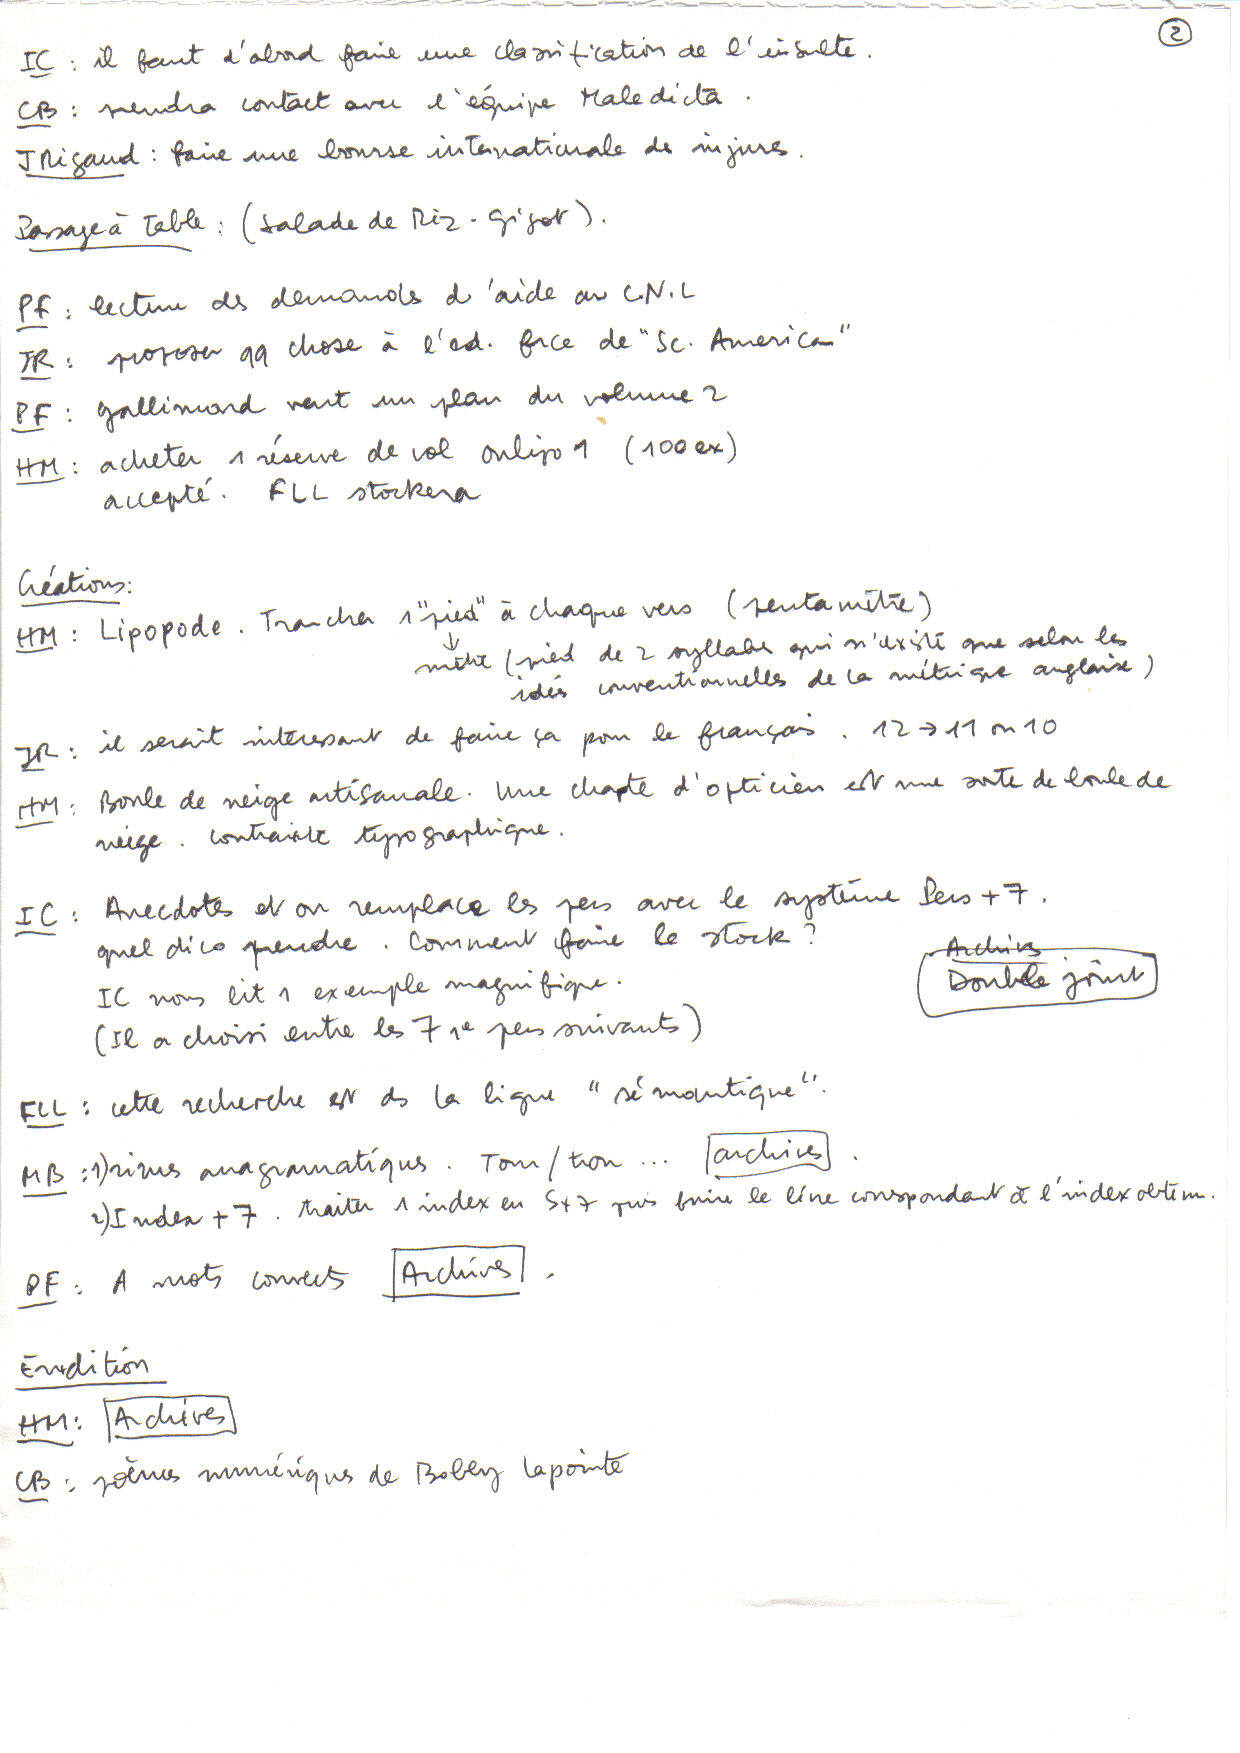 2
IC : il faut d'abord faire une classification de l'insulte.
CB : prendra contact avec l'équipe Maledicta.
JRigaud : faire une bourse internationale des injures.
Passage à Table : (Salade de Riz - Gigot).
PF : lecture des demandes d'aide au C.N.L
JR : proposer qq chose à l'ed. frce de "Sc. American"
PF : gallimard veut un plan du volume 2
HM : acheter 1 réserve de vol oulipo 1 (100 ex)
accepté. FLL stockera
Créations :
HM : Lipopode. Trancher 1 "pied" à chaque vers (pentamètre)
↓
mètre (pied de 2 syllabes qui n'existe que selon les
idées conventionnelles de la métrique anglaise)
JR : il serait intéressant de faire ça pour le français. 12 → 11 ou 10
HM : Boule de neige artisanale. Une charte d'opticien est une sorte de boule de
neige. contrainte typographique.
IC : Anecdotes et on remplace les pers avec le système Pers + 7.
quel dico prendre. Comment faire le stock ?
Archives
Double joint
IC nous lit 1 exemple magnifique.
(Il a choisi entre les 7 1e pers suivants)
FLL : cette recherche est ds la ligne "sémantique".
MB : 1) rimes anagrammatiques. Tom / tron ... archives.
2) Index + 7. traiter 1 index en S+7 puis faire le livre correspondant à l'index obtenu.
PF : A mots couverts Archives.
Erudition
HM : Archives
CB : poèmes numériques de Bobby Lapointe